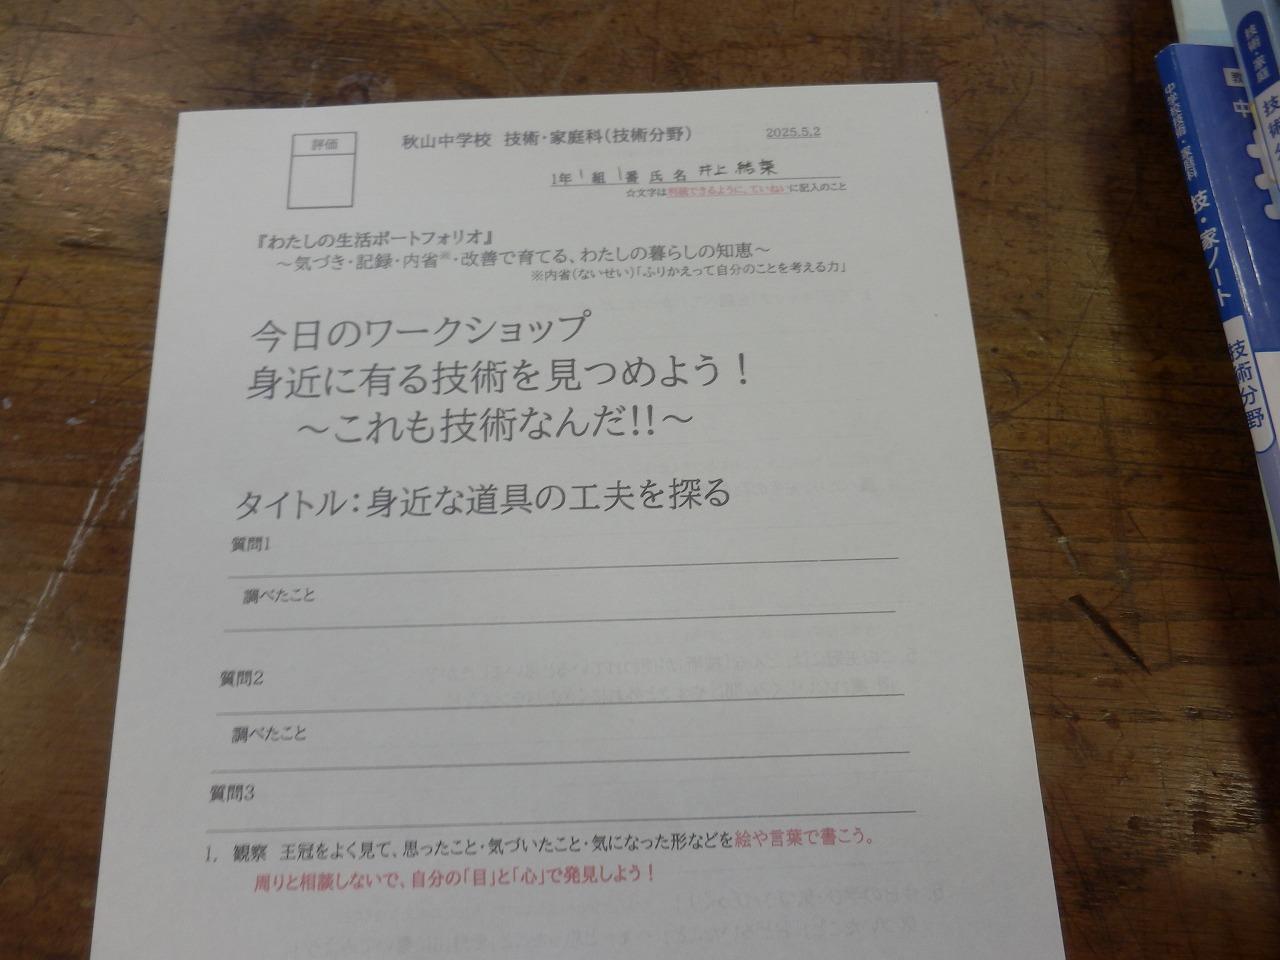 評価
秋山中学校 技術・家庭科(技術分野)
2025.5.2
1年 1 組 1番 氏 名 井上 結菜
☆文字は判読できるように、ていねいに記入のこと
『わたしの生活ポートフォリオ』
～気づき・記録・内省※・改善で育てる、わたしの暮らしの知恵～
※内省(ないせい)「ふりかえって自分のことを考える力」
今日のワークショップ
身近に有る技術を見つめよう！
～これも技術なんだ!!～
タイトル：身近な道具の工夫を探る
質問1
調べたこと
質問2
調べたこと
質問3
1. 観察 王冠をよく見て、思ったこと・気づいたこと・気になった形などを絵や言葉で書こう。
周りと相談しないで、自分の「目」と「心」で発見しよう！
中学校技術・家庭科
技・家ノート
技術分野
技術・家庭